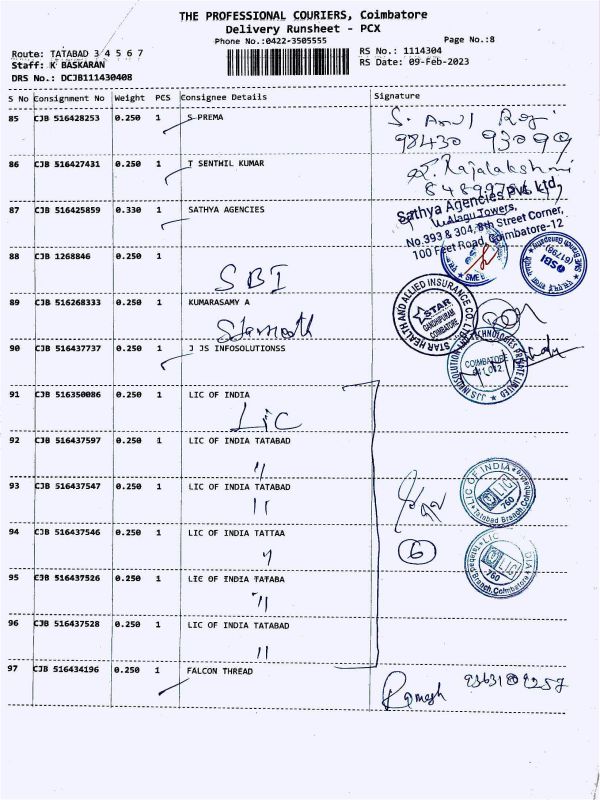 THE PROFESSIONAL COURIERS, Coimbatore
Delivery Runsheet - PCX
Phone No.:0422-3505555
Page No.:8
Route: TATABAD 3 4 5 6 7
RS No.: 1114304
Staff: K BASKARAN
RS Date: 09-Feb-2023
DRS No.: DCJB111430408
S No Consignment No Weight PCS Consignee Details Signature
85 CJB 516428253 0.250 1 S PREMA
98430 93099
86 CJB 516427431 0.250 1 T SENTHIL KUMAR
Rajalakshmi
87 CJB 516425859 0.330 1 SATHYA AGENCIES
Sathya Agencies Pvt. Ltd,
Malagu Towers,
No.393 & 304, 8th Street Corner,
100 Feet Road, Coimbatore-12
88 CJB 1268846 0.250 1
SBI
SBI
89 CJB 516268333 0.250 1 KUMARASAMY A
STAR HEALTH AND ALLIED INSURANCE CO. LTD.
STAR
GANDHIPURAM
COIMBATORE
90 CJB 516437737 0.250 1 J JS INFOSOLUTIONSS
COIMBATORE
91 CJB 516350086 0.250 1 LIC OF INDIA
LIC
92 CJB 516437597 0.250 1 LIC OF INDIA TATABAD
"
93 CJB 516437547 0.250 1 LIC OF INDIA TATABAD
"
LIC OF INDIA
LIC
760
Tatabad Branch, Coimbatore
94 CJB 516437546 0.250 1 LIC OF INDIA TATTAA
"
6
LIC OF INDIA
LIC
760
Tatabad Branch, Coimbatore
95 CJB 516437526 0.250 1 LIC OF INDIA TATABA
"
96 CJB 516437528 0.250 1 LIC OF INDIA TATABAD
"
97 CJB 516434196 0.250 1 FALCON THREAD
Ramesh